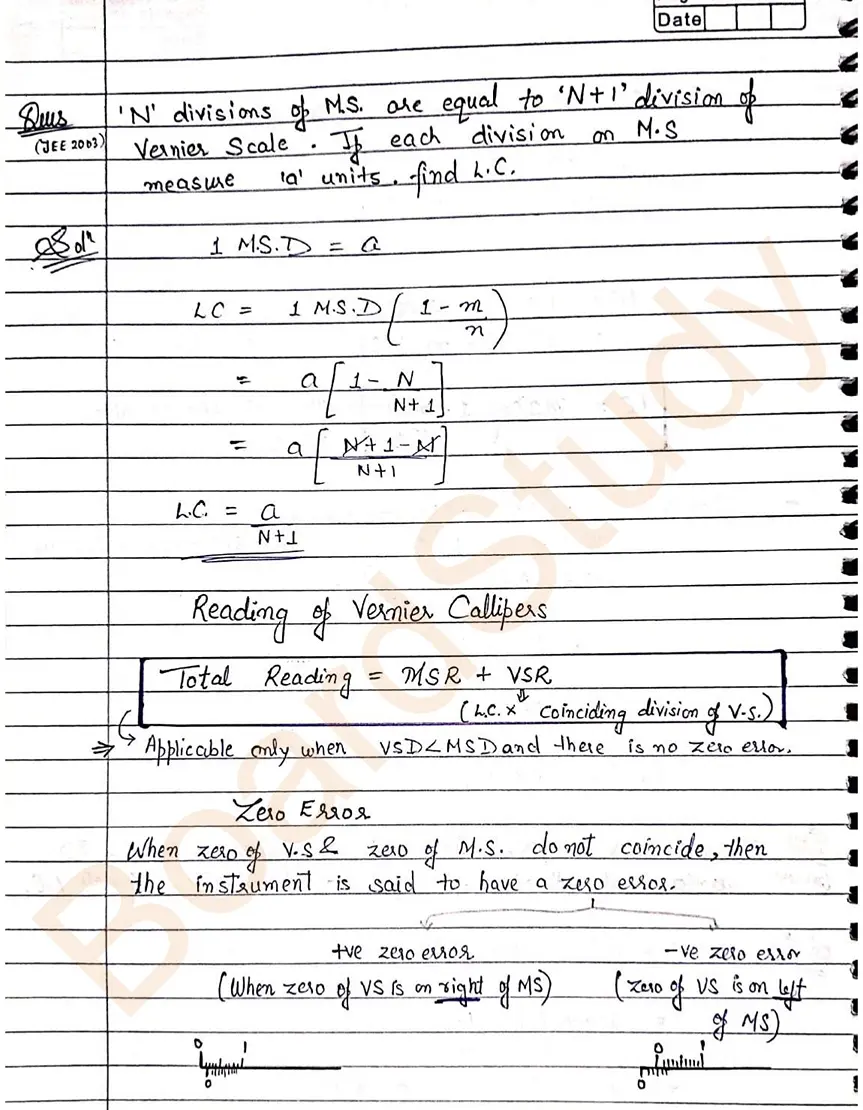 Date
Ques 'N' divisions of M.S. are equal to 'N+1' division of
(JEE 2003) Vernier Scale. If each division on M.S
measure 'a' units. find L.C.
Solⁿ 1 M.S.D = a
LC = 1 M.S.D (1 - m/n)
= a [1 - N/N+1]
= a [N+1-N/N+1]
L.C. = a/N+1
Reading of Vernier Callipers
Total Reading = MSR + VSR
(L.C. × Coinciding division of V.S.)
⇒ Applicable only when VSD<MSD and there is no zero error.
Zero Error
When zero of V.S & zero of M.S. do not coincide, then
the instrument is said to have a zero error.
+ve zero error -ve zero error
(When zero of VS is on right of MS) (Zero of VS is on left
of MS)
0 1 0 1
0 0
BoardStudy